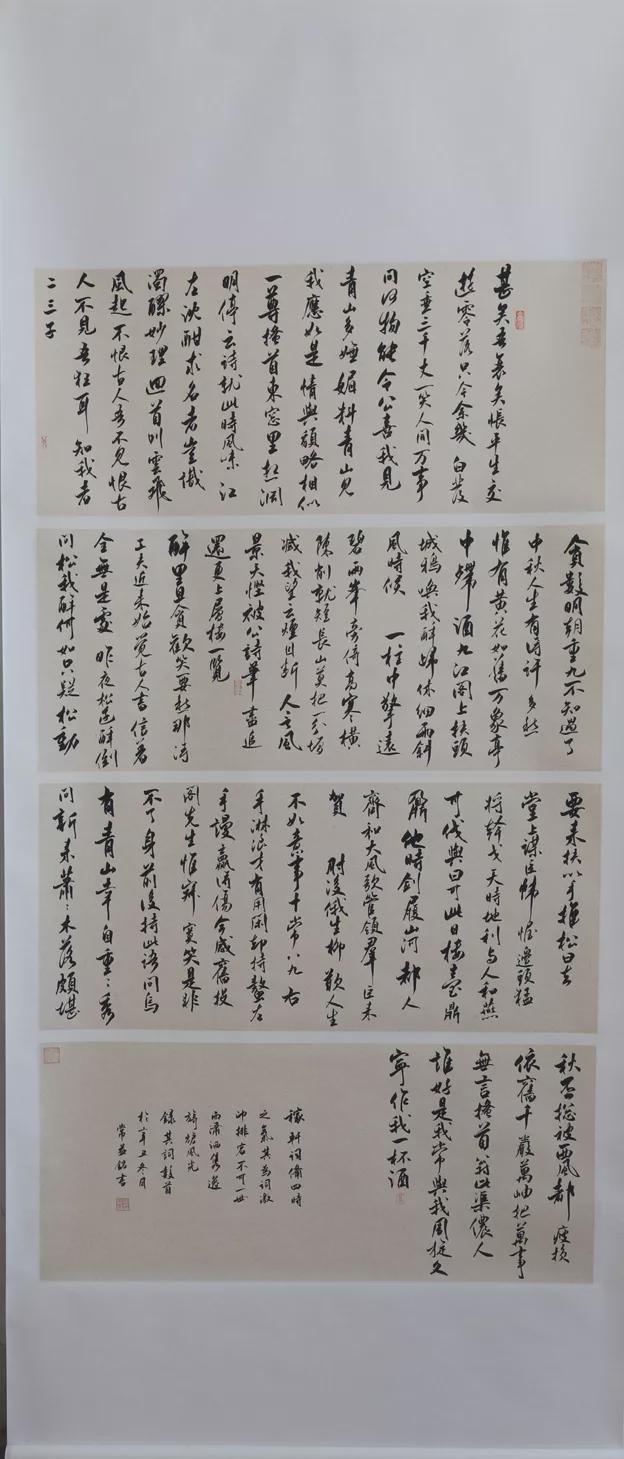 甚矣吾衰矣怅平生交
游零落只今余几 白发
空垂三千丈一笑人间万事
问何物能令公喜我见
青山多妩媚料青山见
我應如是情與貌略相似
一尊搔首東窗里想渊
明停云诗就此时風味 江
左沈酣求名者豈識
濁醪妙理回首叫雲飛
風起 不恨古人吾不見恨古
人不見吾狂耳 知我者
二三子
貪數明朝重九不知過了
中秋人生有得许多愁
惟有黄花如舊万象亭
中殢酒九江閣上扶頭
城鴉唤我醉歸休细雨斜
風時候 一柱中擎遠
碧兩峯旁倚高寒橫
陈削就短長山莫把一分增
减我望云煙目断 人言風
景天慳被公詩筆盡追
還更上層樓一覽
醉里且貪歡笑要愁那得
工夫近来始觉古人書信着
全無是處 昨夜松邊醉倒
问松我醉何如只疑松動
要来扶以手推松曰去
堂上謀臣帷幄邊頭猛
将干戈天時地利与人和燕
可伐與曰可此日樓臺鼎
鼐他時剑履山河都人
齊和大風歌管領群臣来
賀 肘後俄生柳歎人生
不如意事十常八九右
手淋浪才有用閑却持螯左
手謾贏得傷今感舊投
阁先生惟寂寞笑是非
不了身前後持此语问烏
有青山幸自重重秀
问新来蕭蕭木落頗堪
秋否總被西風都瘦损
依舊千巖萬岫把萬事
無言搔首翁比渠儂人
誰好是我常與我周旋久
寧作我一杯酒
稼軒词備四時
之氣其為词激
昂排宕不可一世
而潇洒雋逸
旖旎風光
錄其词數首
於辛丑冬月